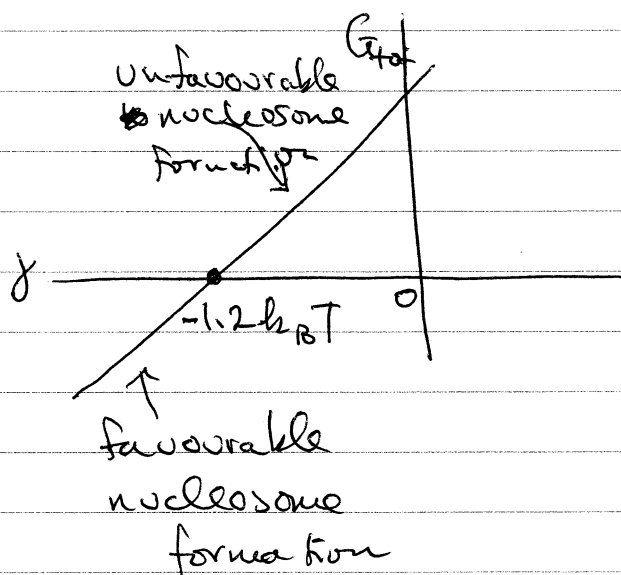 G_tot
unfavourable
nucleosome
formation
γ
-1.2 k_B T
0
favourable
nucleosome
formation